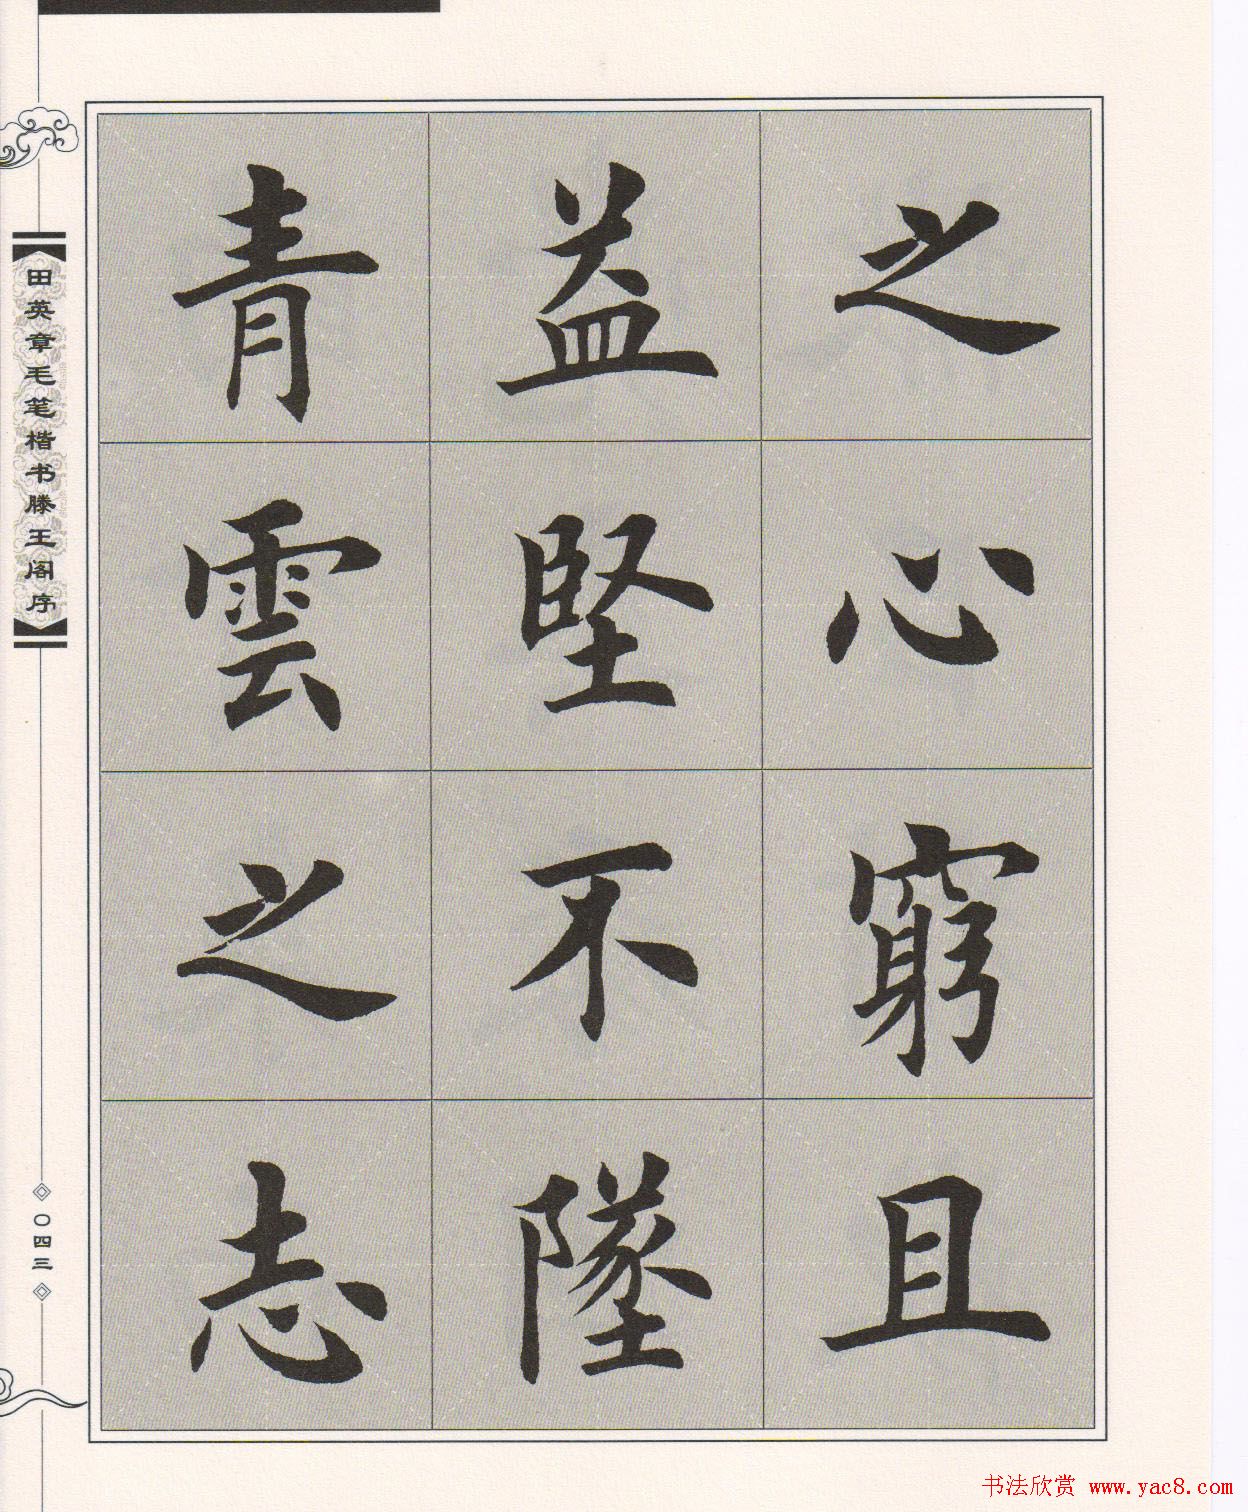 之心窮且
益堅不墜
青雲之志
田英章毛笔楷书滕王阁序
〇四三
书法欣赏 www.yac8.com